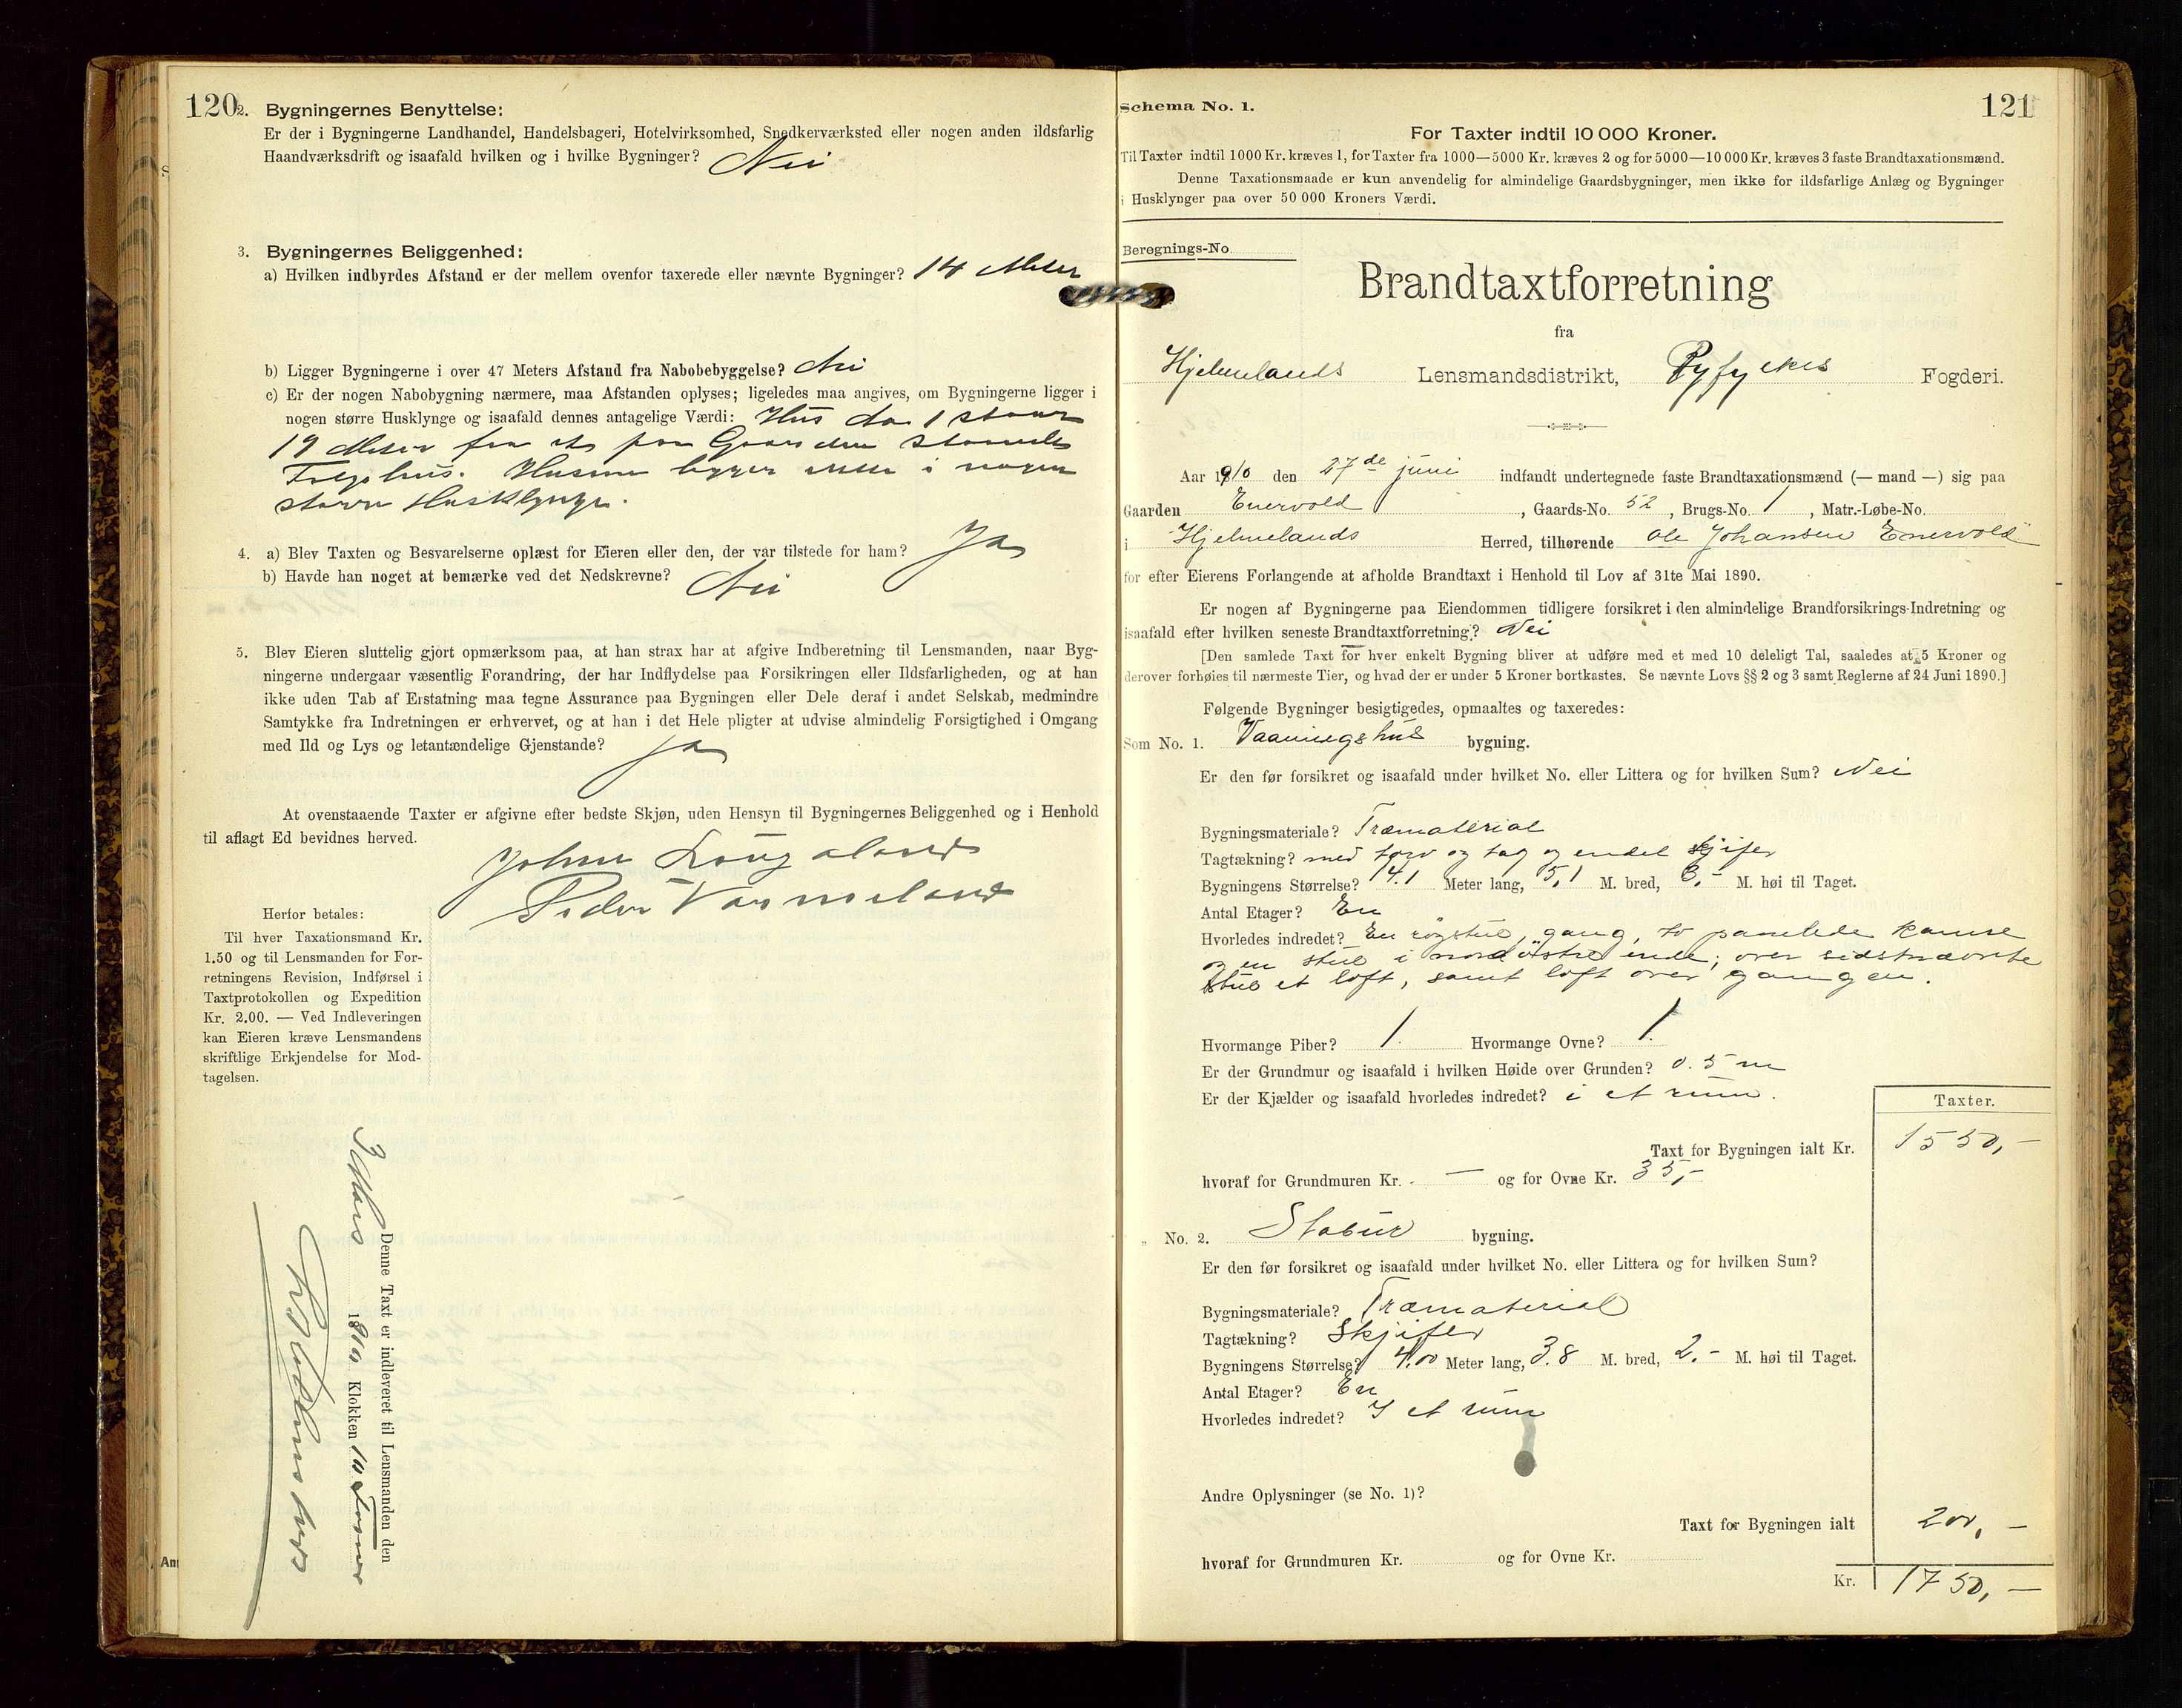 120
2. Bygningernes Benyttelse:
Er der i Bygningerne Landhandel, Handelsbageri, Hotelvirksomhed, Snedkerværksted eller nogen anden ildsfarlig
Haandværksdrift og isaafald hvilken og i hvilke Bygninger? Nei
3. Bygningernes Beliggenhed:
a) Hvilken indbyrdes Afstand er der mellem ovenfor taxerede eller nævnte Bygninger? 14 Meter
b) Ligger Bygningerne i over 47 Meters Afstand fra Nabobebyggelse? Nei
c) Er der nogen Nabobygning nærmere, maa Afstanden oplyses; ligeledes maa angives, om Bygningerne ligger i
nogen større Husklynge og isaafald dennes antagelige Værdi: Hus No 1 staar
19 Meter fra et paa Gaarden staaende
Husene ligger ikke i nogen
større Husklynge.
4. a) Blev Taxten og Besvarelserne oplæst for Eieren eller den, der var tilstede for ham? Ja
b) Havde han noget at bemærke ved det Nedskrevne? Nei
5. Blev Eieren sluttelig gjort opmærksom paa, at han strax har at afgive Indberetning til Lensmanden, naar Byg-
ningerne undergaar væsentlig Forandring, der har Indflydelse paa Forsikringen eller Ildsfarligheden, og at han
ikke uden Tab af Erstatning maa tegne Assurance paa Bygningen eller Dele deraf i andet Selskab, medmindre
Samtykke fra Indretningen er erhvervet, og at han i det Hele pligter at udvise almindelig Forsigtighed i Omgang
med Ild og Lys og letantændelige Gjenstande? Ja
At ovenstaaende Taxter er afgivne efter bedste Skjøn, uden Hensyn til Bygningernes Beliggenhed og i Henhold
til aflagt Ed bevidnes herved.
Peder Vormeland
Herfor betales:
Til hver Taxationsmand Kr.
1.50 og til Lensmanden for For-
retningens Revision, Indførsel i
Taxtprotokollen og Expedition
Kr. 2.00. — Ved Indleveringen
kan Eieren kræve Lensmandens
skriftlige Erkjendelse for Mod-
tagelsen.
Denne Taxt er indleveret til Lensmanden den
Klokken 10
Schema No. 1.
121
For Taxter indtil 10 000 Kroner.
Til Taxter indtil 1000 Kr. kræves 1, for Taxter fra 1000—5000 Kr. kræves 2 og for 5000—10 000 Kr. kræves 3 faste Brandtaxationsmænd.
Denne Taxationsmaade er kun anvendelig for almindelige Gaardsbygninger, men ikke for ildsfarlige Anlæg og Bygninger
i Husklynger paa over 50 000 Kroners Værdi.
Beregnings-No
Brandtaxtforretning
fra
Hjelmelands Lensmandsdistrikt, Ryfylkes Fogderi.
Aar 1910 den 27de juni indfandt undertegnede faste Brandtaxationsmænd (— mand —) sig paa
Gaarden Enervold, Gaards-No. 52, Brugs-No. 1, Matr.-Løbe-No.
i Hjelmelands Herred, tilhørende Ole Johansen Enervold
for efter Eierens Forlangende at afholde Brandtaxt i Henhold til Lov af 31te Mai 1890.
Er nogen af Bygningerne paa Eiendommen tidligere forsikret i den almindelige Brandforsikrings-Indretning og
isaafald efter hvilken seneste Brandtaxtforretning? Nei
[Den samlede Taxt for hver enkelt Bygning bliver at udføre med et med 10 deleligt Tal, saaledes at 5 Kroner og
derover forhøies til nærmeste Tier, og hvad der er under 5 Kroner bortkastes. Se nævnte Lovs §§ 2 og 3 samt Reglerne af 24 Juni 1890.]
Følgende Bygninger besigtigedes, opmaaltes og taxeredes:
Som No. 1. Vaaningshus bygning.
Er den før forsikret og isaafald under hvilket No. eller Littera og for hvilken Sum? Nei
Bygningsmateriale? Træmaterial
Tagtækning? med torv og tag og endel skjifer
Bygningens Størrelse? 14.1 Meter lang, 5,1 M. bred, 3,- M. høi til Taget.
Antal Etager? En
Hvorledes indredet? En røgstue, gang, to panelede kamre
og en stue i nordøstre ende; over sidstnævnte
stue et loft, samt loft over gangen.
Hvormange Piber? 1. Hvormange Ovne? 1.
Er der Grundmur og isaafald i hvilken Høide over Grunden? 0.5 m
Er der Kjælder og isaafald hvorledes indredet? i et rum.
Taxter.
Taxt for Bygningen ialt Kr. 1550,-
hvoraf for Grundmuren Kr. — og for Ovne Kr. 35,-
„ No. 2. Stabur bygning.
Er den før forsikret og isaafald under hvilket No. eller Littera og for hvilken Sum?
Bygningsmateriale? Træmaterial
Tagtækning? Skjifer
Bygningens Størrelse? 4.00 Meter lang, 3.8 M. bred, 2.- M. høi til Taget.
Antal Etager? En
Hvorledes indredet? I et rum
Andre Oplysninger (se No. 1)?
Taxt for Bygningen ialt 200,-
hvoraf for Grundmuren Kr. og for Ovne Kr.
Kr. 1750,-